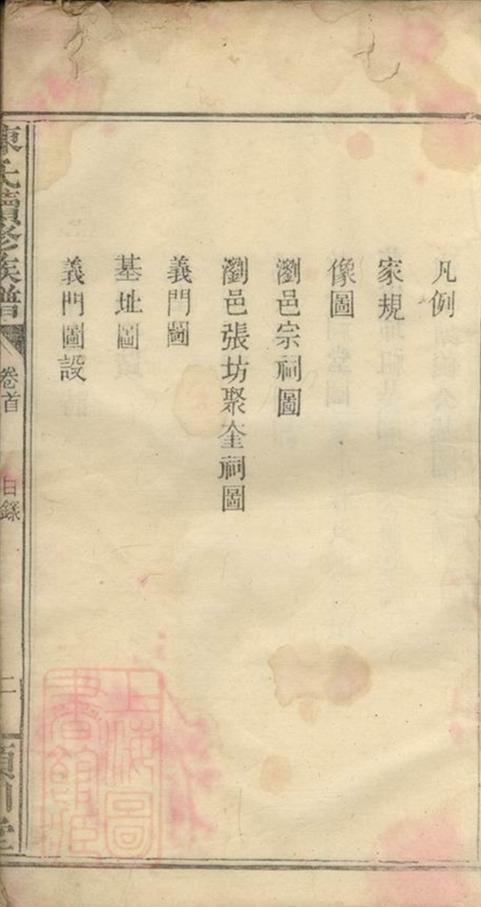 凡例
家規
像圖
瀏邑宗祠圖
瀏邑張坊聚奎祠圖
義門圖
基址圖
義門圖設
陳氏續修族譜
卷首
目錄
二
上海圖
書館藏